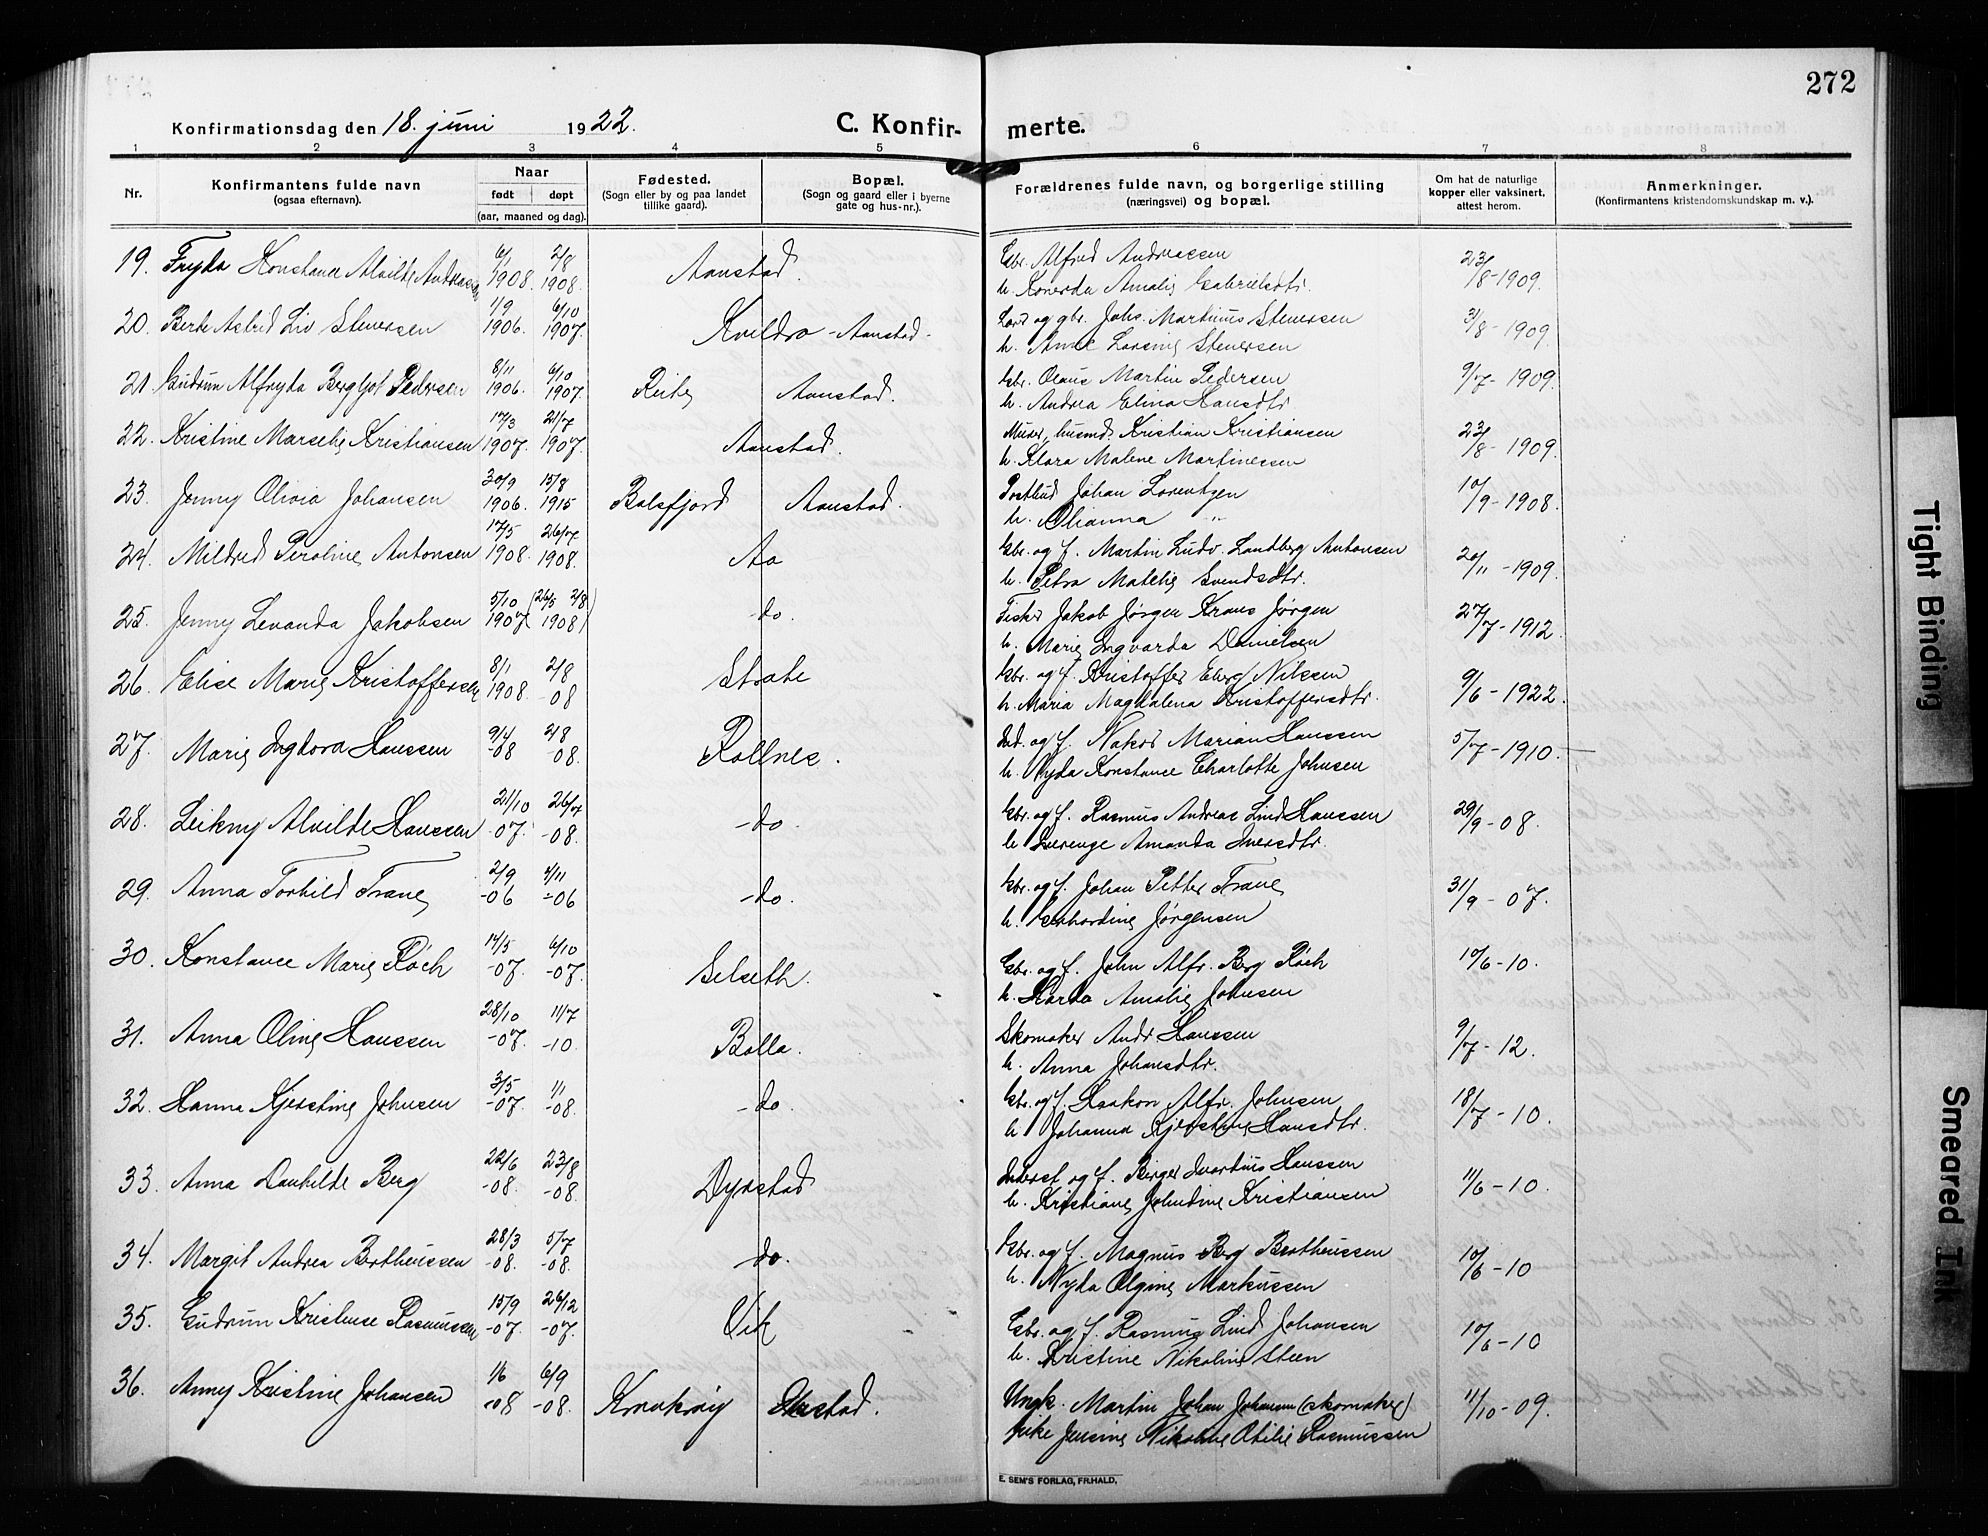 272
Konfirmationsdag den 18. juni 1922. C. Konfirmerte.
1 2 3 4 5 6 7 8
Nr.
Konfirmantens fulde navn
(ogsaa efternavn).
Naar
født døpt
(aar, maaned og dag).
Fødested.
(Sogn eller by og paa landet
tillike gaard).
Bopæl.
(Sogn og gaard eller i byerne
gate og hus-nr.).
Forældrenes fulde navn, og borgerlige stilling
(næringsvei) og bopæl.
Om hat de naturlige
kopper eller vaksinert,
attest herom.
Anmerkninger.
(Konfirmantens kristendomskundskap m. v.).
19. Fryda Konstance Alvilde Andreassen 6/1 1908. 2/8 1908. Aanstad. Gbr. Alfred Andreassen 23/8-1909.
h. Konerda Amalie Gabrielsdtr.
20. Berte Astrid Liv Stenersen 1/9 1906. 6/10 1907. Kvildro - Aanstad - og gbr. Johs. Martinius Stenersen 31/8-1909.
h. Anne Stenersen
21. Gudrun Alfryda Bergljot Pedersen 8/11 1906. 6/10 1907. Aanstad. Gbr. Olaus Martin Pedersen 9/7-1909.
h. Andrea Elina Hansdtr
22. Kristine Marselie Kristiansen 17/3 1907. 21/7 1907. Aanstad. Murer, husmd. Kristian Kristiansen 23/8-1909.
h. Klara Malene Martinessen
23. Jenny Olivia Johansen 30/9 1906. 15/8 1915 Balsfjord Aanstad. Postbud Johan Lorentzen 10/9-1908.
h. Olianna "
24. Mildred Peroline Antonsen 17/5 1908. 26/7 1908. Aa Gbr. og f. Martin Ludv. Landberg Antonsen 20/11-1909.
h. Petra Matelie Svendsdtr.
25. Jenny Levanda Jakobsen 5/10 1907 (26/5 2/8 1908) -do. Fisker Jakob Jørgen Kraus Jørgen 27/7-1912.
h. Marie Ingvarda Danielsen
26. Elise Marie Kristoffersen 8/1 1908. 2/8 -08 Gbr. og f. Kristoffer Eberg Nilssen 9/6-1922.
h. Maria Magdalena Kristoffersdtr.
27. Marie Ingvora Hanssen 9/4 -08 2/8 -08. Rollnes. og f. Hakor Marian Hanssen 5/7-1910.
h. Nyda Konstance Charlotte Johnsen
28. Leikny Alvilde Hanssen 21/10 -07. 26/7 -08. -do. Gbr. og f. Rasmus Andreas Lind Hanssen 29/9-08.
h. Amanda Iversdtr.
29. Anna Torhild Trane 2/9 -06 4/11 -06 -do. Gbr. og f. Johan Petter Trane 31/9-07.
h. Jørgensen
30. Konstance Marie Röch 14/5 -07. 6/10 -07. Selseth. Gbr. og f. John Alfr. Berg Röch 10/6-10.
h. Amalie Johnsen
31. Anna Oline Hanssen 28/10 -07. 11/7 -10. Bolla. Skomaker Andr Hanssen 9/7-12.
h. Anna Johansdtr.
32. Hanna Kjerstine Johnsen 3/5 -07. 1/1 -08. -do. Gbr. og f. Haakon Alfr. Johnsen 18/7-10.
h. Johanna Kjerstine Hansdtr.
33. Anna Danhilde Berg 22/6 -08. 23/8 -08. Dyrstad Inderst og f. Birger Hanssen 11/6-10.
h. Kristiane Johndine Kristiansen
34. Margit Andrea Bertheussen 28/3 -08. 5/7 -08. -do. Gbr. og f. Magnus Berg Bertheussen 10/6-10
h. Nyda Olgine Markussen
35. Gudrun Kristense Rasmussen 15/9 -07. 26/12 -07. Vik Gbr. og f. Rasmus Lind Johansen 10/6-10
h. Kristine Nikoline Steen
36. Anny Kristine Johansen 1/6 -08 6/9 -08. Ungk. Martin Johan Johansen (skomaker) 11/10-09.
Pike Jensine Nikoline Otilie Rasmussen
E. SEM'S FORLAG, FR.HALD.
Tight Binding
Smeared Ink